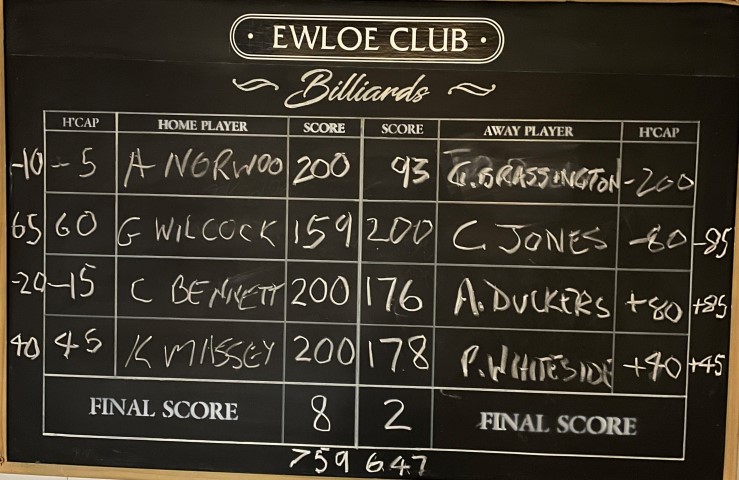 · EWLOE CLUB ·
Billiards
H'CAP HOME PLAYER SCORE SCORE AWAY PLAYER H'CAP
-10 -5 A NORWOO 200 93 G.BRASSINGTON -200
65 60 G WILCOCK 159 200 C JONES -80 -85
-20 -15 C BENNETT 200 176 A.DUCKERS +80 +85
40 45 K MASSEY 200 178 P.WHITESIDE +40 +45
FINAL SCORE 8 2 FINAL SCORE
759 647